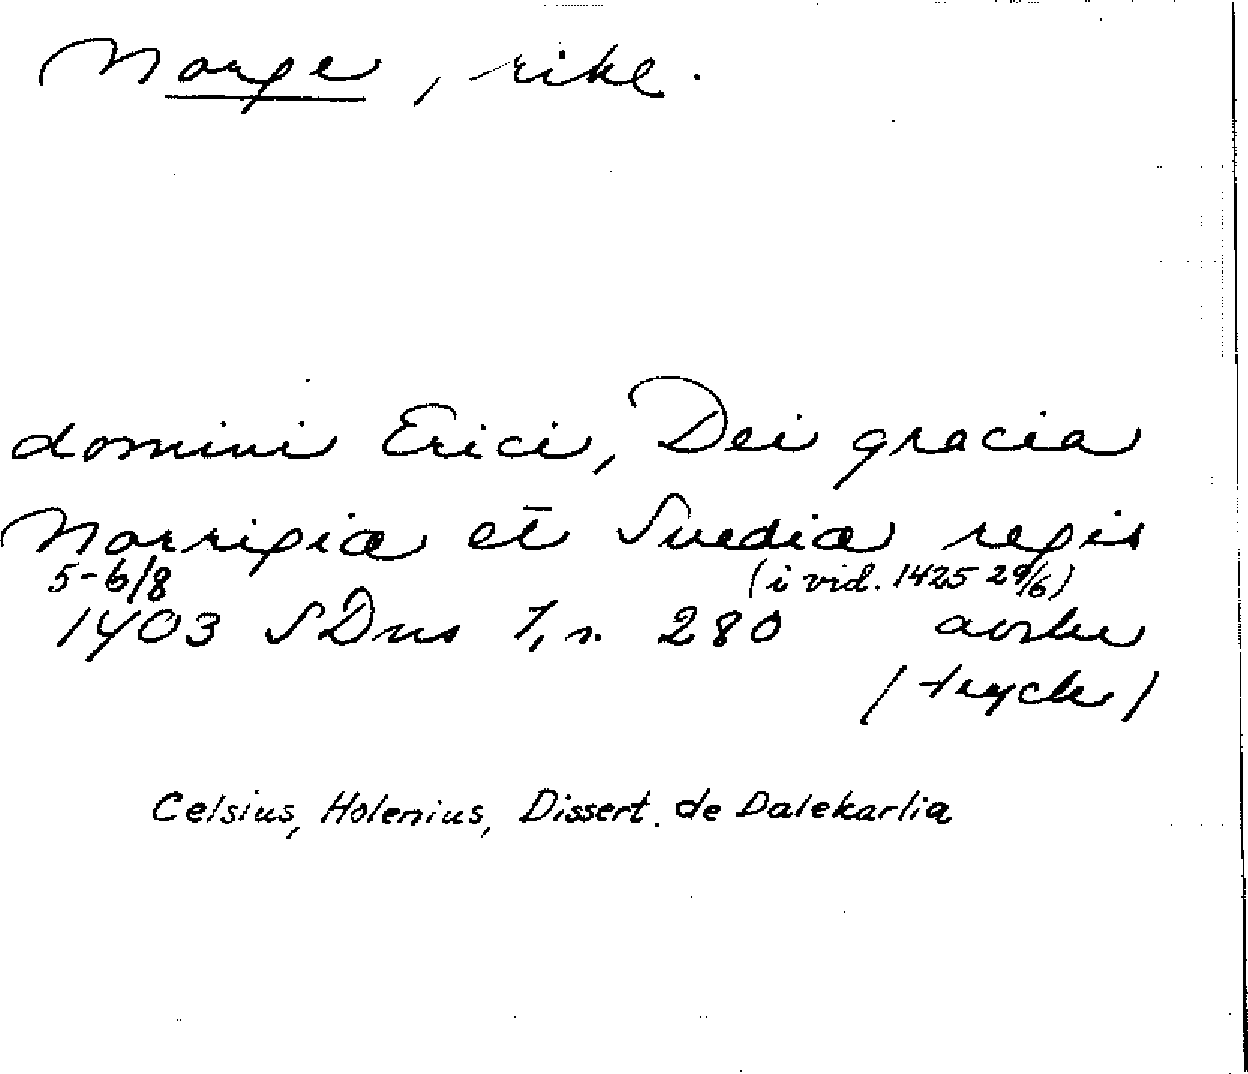 Norge, rike.
domini Erici, Dei gracia
Norrigiæ et Suediæ regis
5-6/8 (i vid. 1425 29/6)
1403 SDns 1, s. 280 avskr
(tryck)
Celsius, Holenius, Dissert. de Dalekarlia